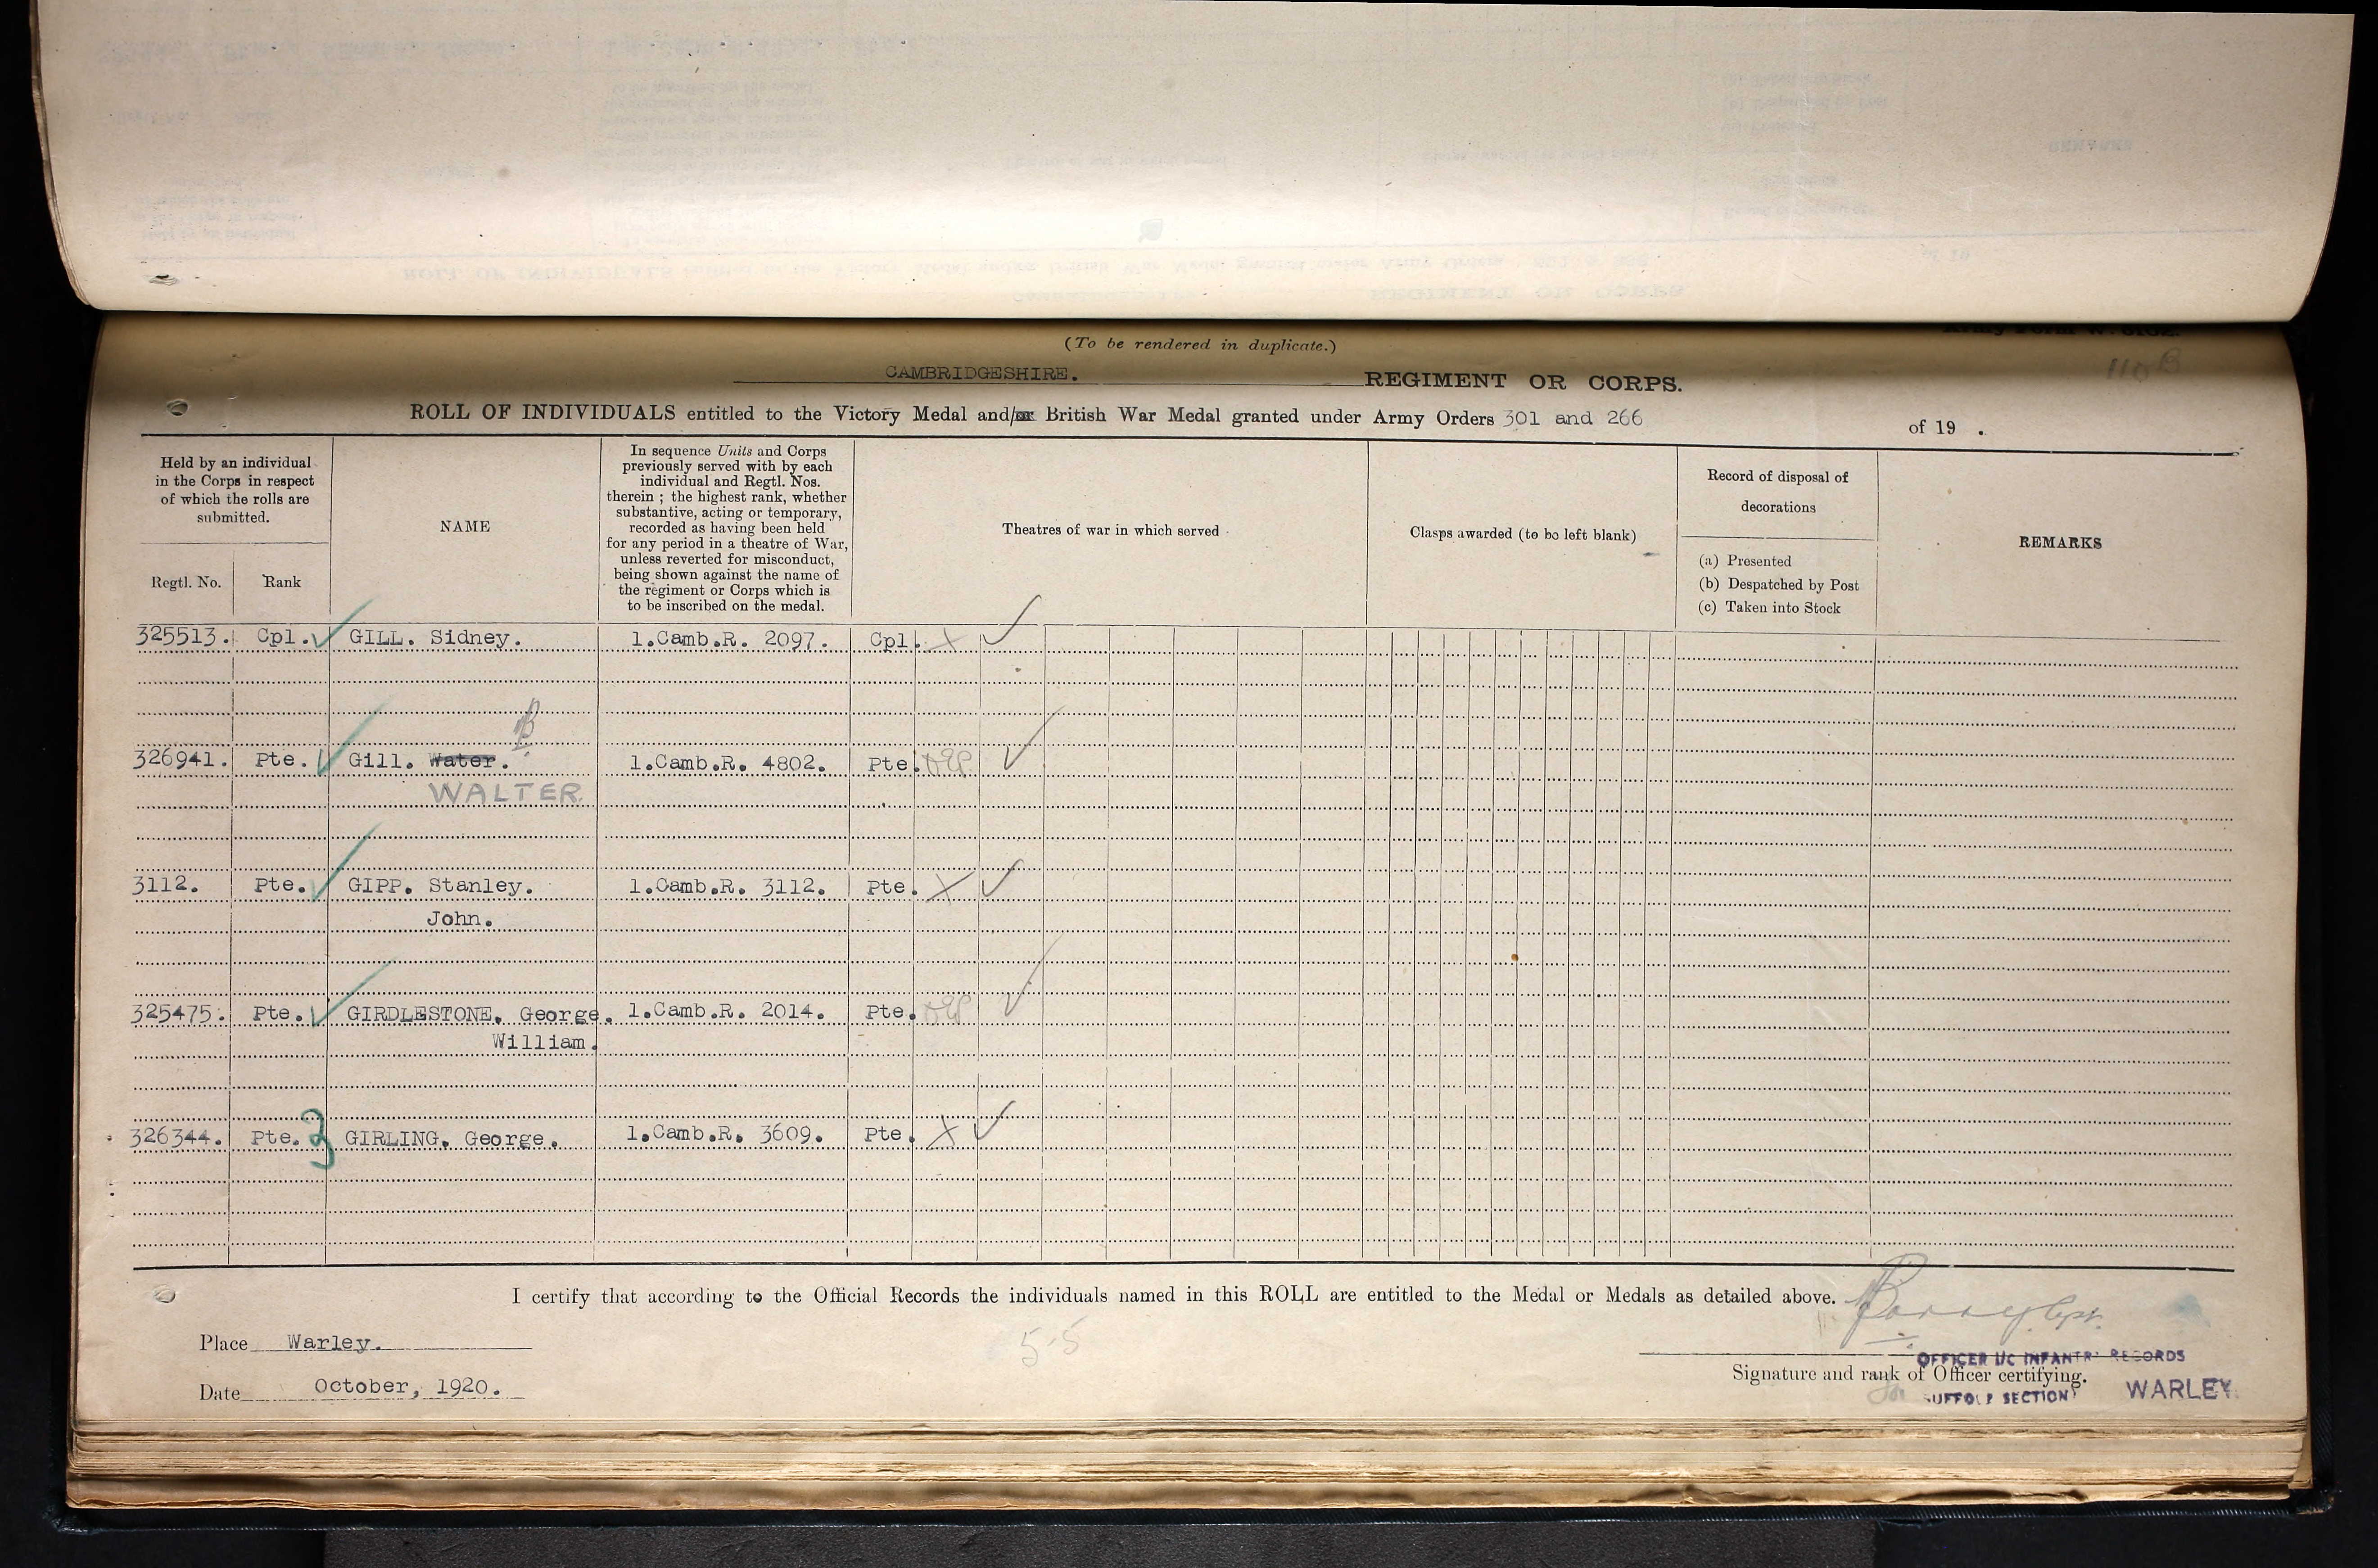 (To be rendered in duplicate.)
110B
CAMBRIDGESHIRE. REGIMENT OR CORPS.
ROLL OF INDIVIDUALS entitled to the Victory Medal and/or British War Medal granted under Army Orders 301 and 266 of 19 .
Held by an individual in the Corps in respect of which the rolls are submitted.
Regtl. No.
Rank
NAME
In sequence Units and Corps
previously served with by each
individual and Regtl. Nos.
therein ; the highest rank, whether
substantive, acting or temporary,
recorded as having been held
for any period in a theatre of War,
unless reverted for misconduct,
being shown against the name of
the regiment or Corps which is
to be inscribed on the medal.
Theatres of war in which served
Clasps awarded (to be left blank)
Record of disposal of
decorations
(a) Presented
(b) Despatched by Post
(c) Taken into Stock
REMARKS
325513. Cpl. GILL. Sidney. 1.Camb.R. 2097. Cpl.
326941. Pte. Gill. Water. 1.Camb.R. 4802. Pte.
WALTER
3112. Pte. GIPP. Stanley. 1.Camb.R. 3112. Pte.
John.
325475. Pte. GIRDLESTONE. George. 1.Camb.R. 2014. Pte.
William.
326344. Pte. 3 GIRLING. George. 1.Camb.R. 3609. Pte.
I certify that according to the Official Records the individuals named in this ROLL are entitled to the Medal or Medals as detailed above.
Place Warley.
5.5
OFFICER I/C INFANTRY RECORDS
Signature and rank of Officer certifying.
Date October, 1920.
SUFFOLK SECTION WARLEY.